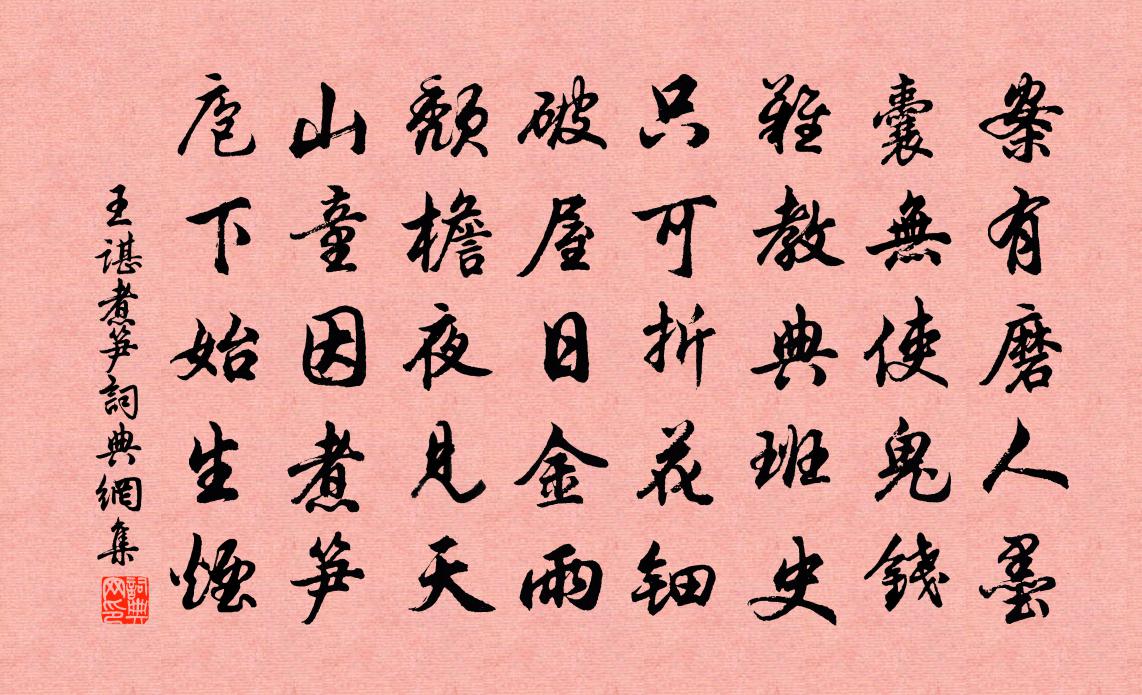 案有磨人墨
囊無使鬼錢
難教典班史
只可折花鈿
破屋日金雨
頹檐夜見天
山童因煮笋
庖下始生煙
王諶煮笋詞典網集
詞典網印